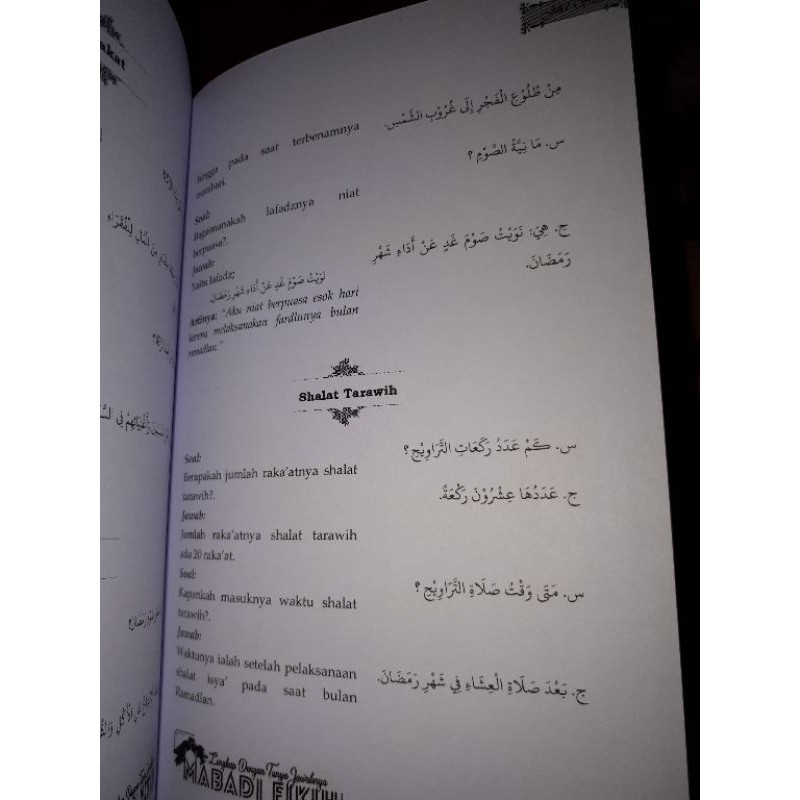 hingga pada saat terbenamnya
matahari.
مِنْ طُلُوْعِ الْفَجْرِ إِلَى غُرُوْبِ الشَّمْسِ.
Soal:
Bagaimanakah lafadznya niat
berpuasa?.
س. مَا نِيَّةُ الصَّوْمِ ؟
Jawab:
Yaitu lafadz:
نَوَيْتُ صَوْمَ غَدٍ عَنْ أَدَاءِ شَهْرِ رَمَضَانَ
Artinya: "Aku niat berpuasa esok hari
karena melaksanakan fardlunya bulan
ramadlan."
ج. هِيَ: نَوَيْتُ صَوْمَ غَدٍ عَنْ أَدَاءِ شَهْرِ
رَمَضَانَ.
Shalat Tarawih
Soal:
Berapakah jumlah raka'atnya shalat
tarawih?.
س. كَمْ عَدَدُ رَكَعَاتِ التَّرَاوِيْحِ ؟
Jawab:
Jumlah raka'atnya shalat tarawih
ada 20 raka'at.
ج. عَدَدُهَا عِشْرُوْنَ رَكْعَةً.
Soal:
Kapankah masuknya waktu shalat
tarawih?.
س. مَتَى وَقْتُ صَلَاةِ التَّرَاوِيْحِ ؟
Jawab:
Waktunya ialah setelah pelaksanaan
shalat isya' pada saat bulan
Ramadlan.
ج. بَعْدَ صَلَاةِ الْعِشَاءِ فِي شَهْرِ رَمَضَانَ.
Lengkap Dengan Tanya Jawabnya
MABADI FIKIH